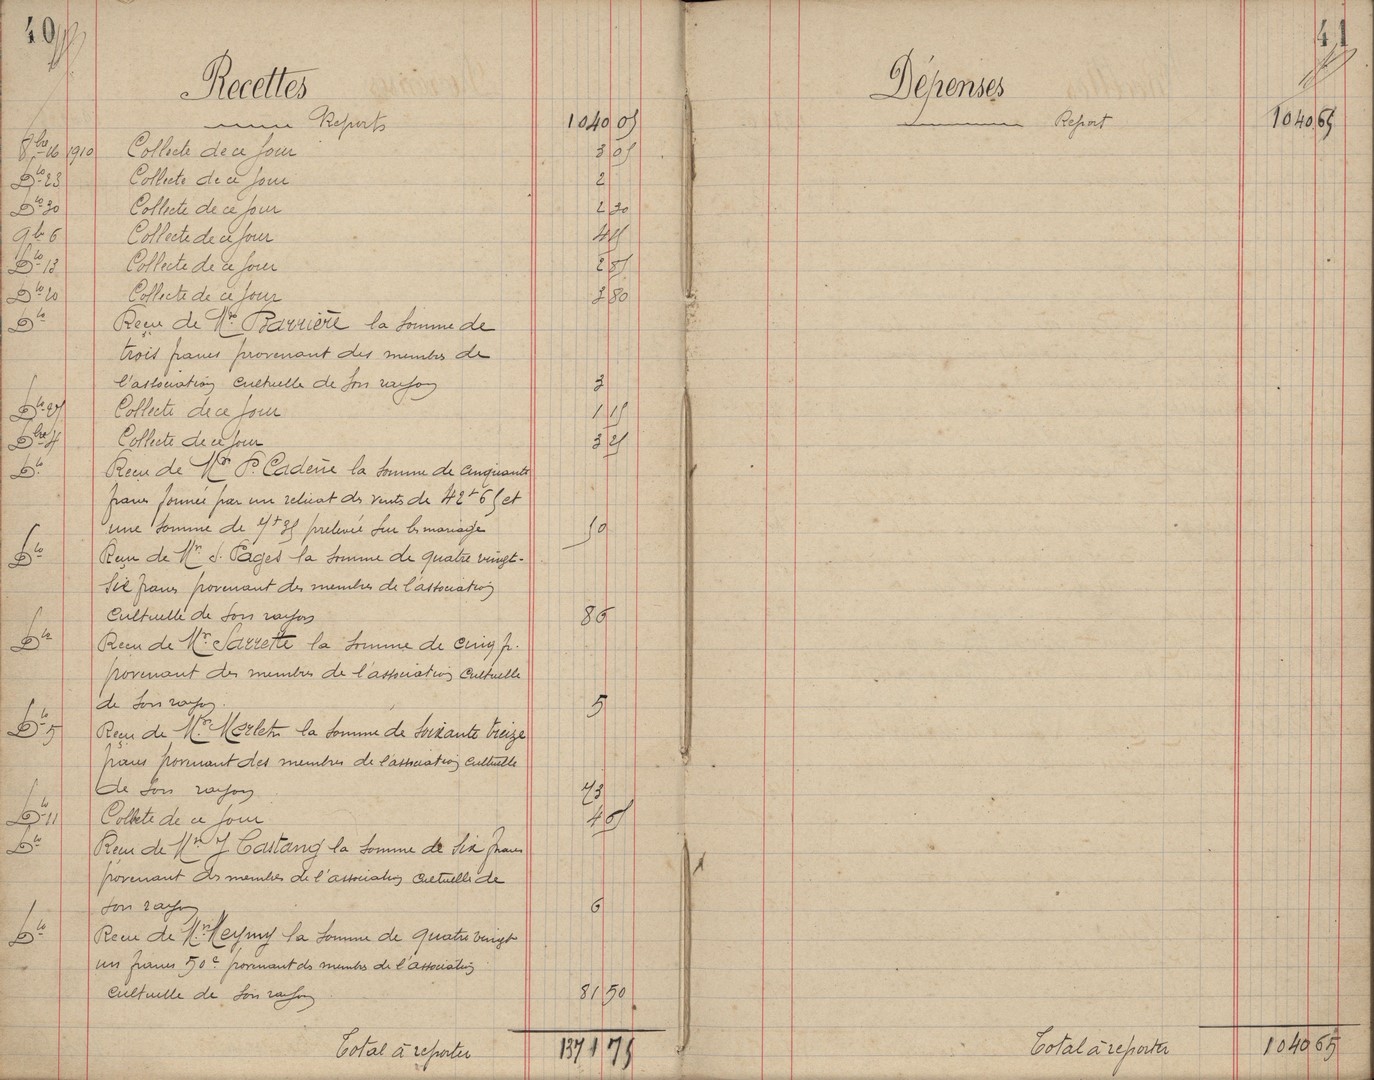 40
Recettes
Reports 1040 05
8bre 16 1910 Collecte de ce Jour 3 05
Dto 23 Collecte de ce Jour 2
Dto 30 Collecte de ce Jour 2 30
9b 6 Collecte de ce Jour 4 15
Dto 13 Collecte de ce Jour 2 85
Dto 20 Collecte de ce Jour 3 80
Dto Reçu de Mr Barrière la somme de
trois francs provenant des membres de
l'association cultuelle de son rayon 3
Dto 27 Collecte de ce Jour 1 15
Dbre 4 Collecte de ce Jour 3 25
Dto Reçu de Mr P. Cadène la somme de cinquante
francs formée par un relicat des vents de 42f 65 et
une somme de 7f 35 prelevée sur les mariage 50
Dto Reçu de Mr J. Pagès la somme de quatre vingt-
six francs provenant des membres de l'association
cultuelle de son rayon 86
Dto Reçu de Mr Sarrette la somme de cinq f.
provenant des membres de l'association cultuelle
de son rayon. 5
Dto 5 Reçu de Mr Merlet la somme de soixante treize
francs provenant des membres de l'association cultuelle
de son rayon 73
Dto 11 Collecte de ce Jour 4 65
Dto Reçu de Mr J Castang la somme de six francs
provenant des membres de l'association cultuelle de
son rayon 6
Dto Reçu de Mr Meymy la somme de quatre vingt
un francs 50c provenant des membres de l'association
cultuelle de son rayon 81 50
Total à reporter 1371 75
41
Dépenses
Report 1040 65
Total à reporter 1040 65